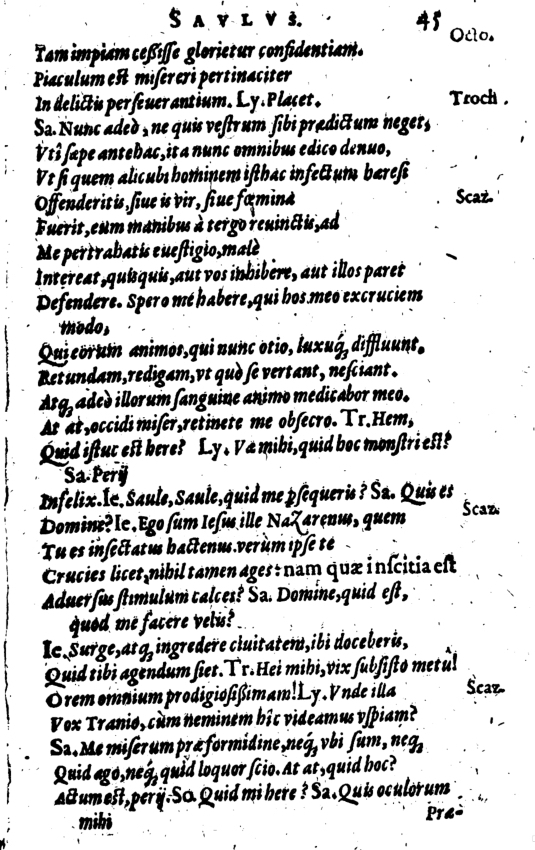 SAVLVS. 45
Octo.
Tam impiam ceßiſſe glorietur confidentiam.
Piaculum eſt miſereri pertinaciter
In delictis perſeuerantium. Ly. Placet. Troch.
Sa. Nunc adeò, ne quis veſtrum ſibi prædictum neget,
Vti ſæpe antehac, ita nunc omnibus edico denuo,
Vt ſi quem alicubi hominem iſthac infectum hæreſi
Offenderitis, ſiue is vir, ſiue fœmina Scaz.
Fuerit, eum manibus à tergo reuinctis, ad
Me pertrahatis eueſtigio, malè
Intereat, quiſquis, aut vos inhibere, aut illos paret
Defendere. Spero me habere, qui hos meo excruciem
modo,
Qui eorum animos, qui nunc otio, luxuq́; diffluunt.
Retundam, redigam, vt quò ſe vertant, neſciant.
Atq; adeò illorum ſanguine animo medicabor meo.
At at, occidi miſer, retinete me obſecro. Tr. Hem,
Quid iſtuc eſt here? Ly. Væ mihi, quid hoc monſtri eſt?
Sa. Perij
Infelix. Ie. Saule, Saule, quid me ꝑſequeris? Sa. Quis es
Domine? Ie. Ego ſum Ieſus ille Nazarenus, quem Scaz.
Tu es inſectatus hactenus. verùm ipſe te
Crucies licet, nihil tamen ages: nam quæ inſcitia eſt
Aduerſus ſtimulum calces? Sa. Domine, quid eſt,
quod me facere velis?
Ie. Surge, atq; ingredere ciuitatem, ibi doceberis,
Quid tibi agendum ſiet. Tr. Hei mihi, vix ſubſiſto metu!
O rem omnium prodigioſißimam! Ly. Vnde illa Scaz.
Vox Tranio, cùm neminem hîc videamus vſpiam?
Sa. Me miſerum præ formidine, neq́; vbi ſum, neq́;
Quid ago, neq́; quid loquor ſcio. At at, quid hoc?
Actum eſt, perij. So. Quid mi here? Sa. Quis oculorum
mihi Præ-